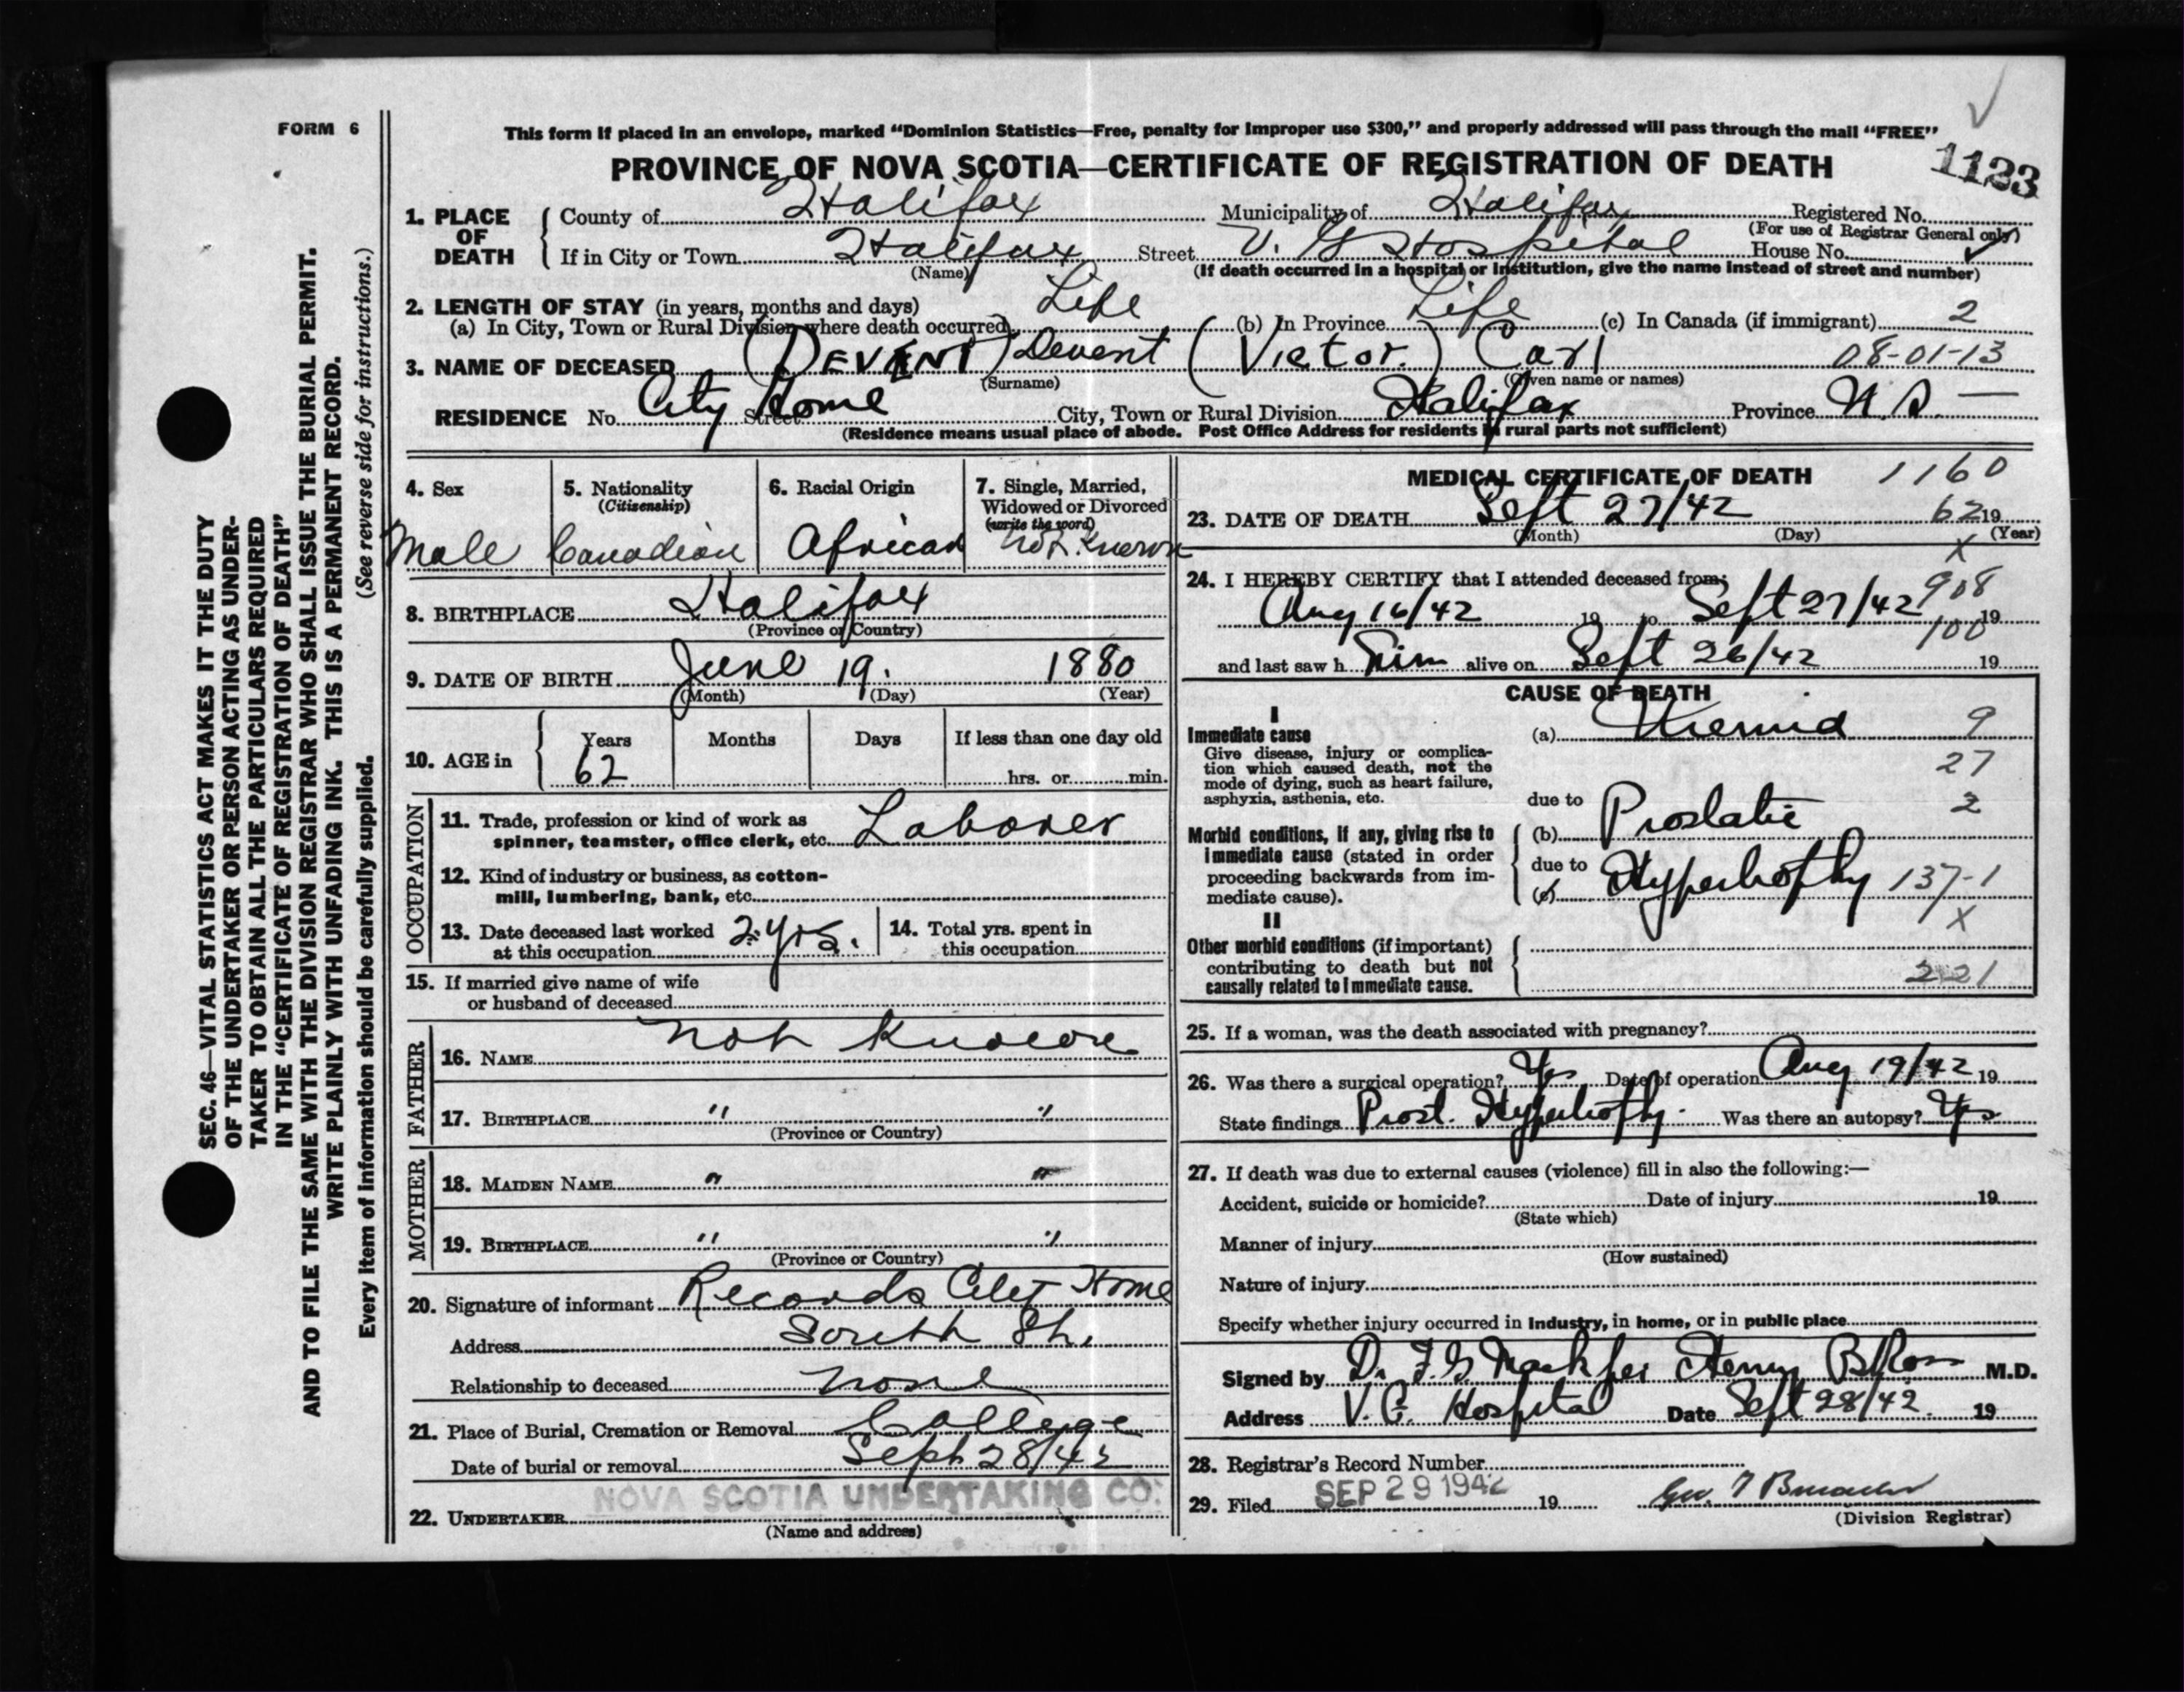 FORM 6
This form if placed in an envelope, marked “Dominion Statistics—Free, penalty for improper use $300,” and properly addressed will pass through the mail “FREE”
PROVINCE OF NOVA SCOTIA—CERTIFICATE OF REGISTRATION OF DEATH
1123
1. PLACE OF DEATH
County of Halifax Municipality of Halifax Registered No.
(For use of Registrar General only)
If in City or Town Halifax Street V. G Hospital House No.
(Name) (If death occurred in a hospital or institution, give the name instead of street and number)
2. LENGTH OF STAY (in years, months and days)
(a) In City, Town or Rural Division where death occurred Life (b) In Province Life (c) In Canada (if immigrant) 2
3. NAME OF DECEASED (DEVENT) Devent (Victor.) Carl 08-01-13
(Surname) (Given name or names)
RESIDENCE No. City Home Street City, Town or Rural Division Halifax Province N.S. —
(Residence means usual place of abode. Post Office Address for residents in rural parts not sufficient)
4. Sex
Male
5. Nationality
(Citizenship)
Canadian
6. Racial Origin
African
7. Single, Married,
Widowed or Divorced
(write the word)
Not Known
8. BIRTHPLACE Halifax
(Province or Country)
9. DATE OF BIRTH June 19. 1880
(Month) (Day) (Year)
10. AGE in Years Months Days If less than one day old
62 hrs. or min.
OCCUPATION
11. Trade, profession or kind of work as
spinner, teamster, office clerk, etc. Laborer
12. Kind of industry or business, as cotton-
mill, lumbering, bank, etc.
13. Date deceased last worked
at this occupation 2 yrs.
14. Total yrs. spent in
this occupation
15. If married give name of wife
or husband of deceased
FATHER
16. NAME Not Known
17. BIRTHPLACE " "
(Province or Country)
MOTHER
18. MAIDEN NAME " "
19. BIRTHPLACE " "
(Province or Country)
20. Signature of informant Records City Home
Address South St.
Relationship to deceased none
21. Place of Burial, Cremation or Removal College
Date of burial or removal Sept 28/42
NOVA SCOTIA UNDERTAKING CO.
22. UNDERTAKER
(Name and address)
MEDICAL CERTIFICATE OF DEATH 1160
23. DATE OF DEATH Sept 27/42 62 19
(Month) (Day) (Year)
X
24. I HEREBY CERTIFY that I attended deceased from: 908
Aug 16/42 19 to Sept 27/42 19
100
and last saw h him alive on Sept 26/42 19
CAUSE OF DEATH
I
Immediate cause
Give disease, injury or complica-
tion which caused death, not the
mode of dying, such as heart failure,
asphyxia, asthenia, etc.
(a) Uremia 9
27
due to 2
Morbid conditions, if any, giving rise to
immediate cause (stated in order
proceeding backwards from im-
mediate cause).
(b) Prostatic
due to
(c) Hypertrophy 137-1
X
II
Other morbid conditions (if important)
contributing to death but not
causally related to immediate cause.
221
25. If a woman, was the death associated with pregnancy?
26. Was there a surgical operation? Yes Date of operation Aug 19/42 19
State findings Prost. Hypertrophy. Was there an autopsy? Yes
27. If death was due to external causes (violence) fill in also the following:—
Accident, suicide or homicide? Date of injury 19
(State which)
Manner of injury
(How sustained)
Nature of injury
Specify whether injury occurred in industry, in home, or in public place
Signed by Dr F.G. Mack per Henry B Ross M.D.
Address V. G. Hospital Date Sept 28/42. 19
28. Registrar's Record Number
29. Filed SEP 29 1942 19
(Division Registrar)
SEC. 46—VITAL STATISTICS ACT MAKES IT THE DUTY
OF THE UNDERTAKER OR PERSON ACTING AS UNDER-
TAKER TO OBTAIN ALL THE PARTICULARS REQUIRED
IN THE “CERTIFICATE OF REGISTRATION OF DEATH”
AND TO FILE THE SAME WITH THE DIVISION REGISTRAR WHO SHALL ISSUE THE BURIAL PERMIT.
WRITE PLAINLY WITH UNFADING INK. THIS IS A PERMANENT RECORD.
Every item of information should be carefully supplied. (See reverse side for instructions.)